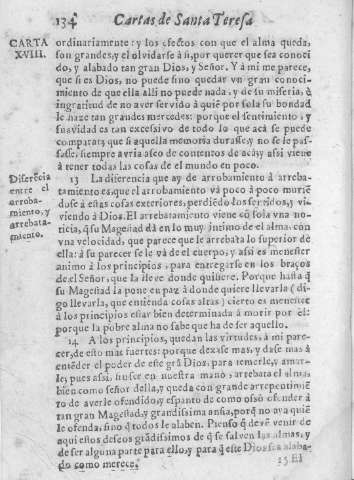 134 Cartas de Santa Teresa
CARTA XVIII.
ordinariamente: y los efectos con que el alma queda,
son grandes, y el olvidarse à si, por querer que sea conoci
do, y alabado tan gran Dios, y Señor. Y à mi me parece,
que si es Dios, no puede sino quedar vn gran conoci-
miento de que ella alli no puede nada, y de su miseria, è
ingratitud de no aver servido à quiẽ por sola su bondad
le haze tan grandes mercedes: porque el sentimiento, y
suavidad es tan excessivo de todo lo que acà se puede
comparar; que si aquella memoria durasse, y no se le pas-
sasse, siempre avria asco de contentos de acà; y assi viene
à tener todas las cosas de el mundo en poco.
Diferẽcia entre el arroba-miento, y arrebata-miento.
13 La diferencia que ay de arrobamiento à arreba-
tamiento es, que el arrobamiento và poco à poco muriẽ
dose à estas cosas exteriores, perdiẽdo los sentidos, y vi-
viendo à Dios. El arrebatamiento viene cõ sola vna no-
ticia, q̃ su Magestad dà en lo muy intimo de el alma, con
vna velocidad, que parece que le arrebata lo superior de
ella: à su parecer se le và de el cuerpo, y assi es menester
animo à los principios, para entregarse en los braços
de el Señor, que la lleve donde quisiere. Porque hasta q̃
su Magestad la pone en paz à donde quiere llevarla (di-
go llevarla, que entienda cosas altas) cierto es menester
à los principios estar bien determinada à morir por el:
porque la pobre alma no sabe que ha de ser aquello.
14 A los principios, quedan las virtudes, à mi pare-
cer, de esto mas fuertes: porque dexase mas, y dase mas à
entẽder el poder de este grã Dios, para temerle, y amar-
le; pues assi, sin ser en nuestra mano, arrebata el alma,
bien como señor della, y queda con grande arrepentimiẽ
to de averle ofendido, y espanto de como osò ofender à
tan gran Magestad, y grandissima ansia, porq̃ no aya quiẽ
le ofenda, sino q̃ todos le alaben. Pienso q̃ devẽ venir de
aqui estos deseos grãdissimos de q̃ se salven las almas, y
de ser alguna parte para ello, y para q̃ este Dios sea alaba-
do como merece.
15 El